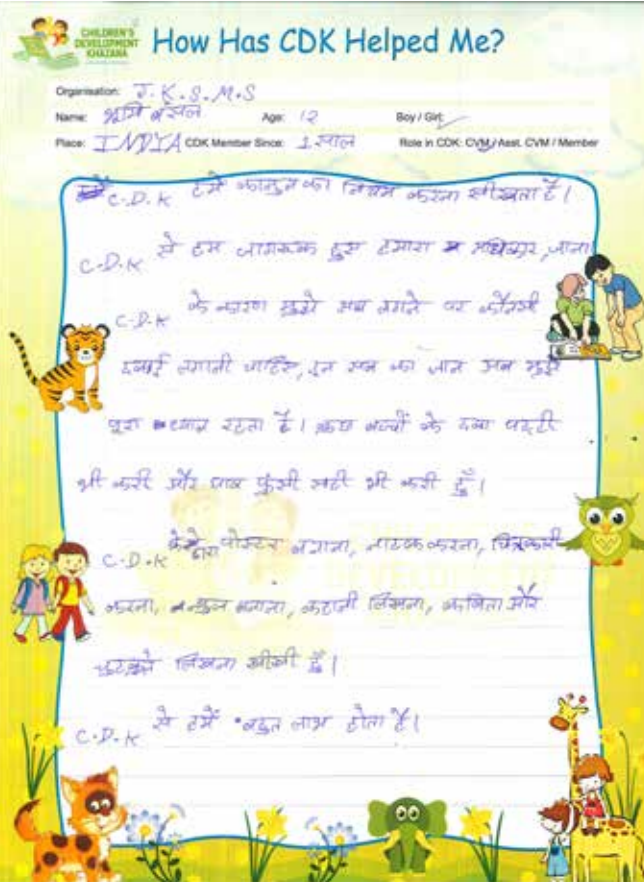 CHILDREN'S
DEVELOPMENT
KHAZANA
How Has CDK Helped Me?
Organisation: J.K.S.M.S
Name: भूमि बंसल Age: 12 Boy / Girl:
Place: INDIA CDK Member Since: 1 साल Role in CDK: CVM / Asst. CVM / Member
C.D.K हमें कानुन का नियम करना सीखता है।
C.D.K से हम जागरूक हुए हमारा अधिकार, जाना
C.D.K के कारण मुझे अब लगने पर कौनसी
दवाई लगानी चाहिए, इन सब का जान अब मुझे
पूरा ध्यान रहता है। कुछ बच्चों के दवा पट्टी
भी करी और घाव फुंसी भी करी हुँ।
C.D.K द्वारा पोस्टर बनाना, नाटक करना, चित्रकारी
करना, बनाना, कहानी लिखना, कविता और
चुटकुले लिखना सीखी हुँ।
C.D.K से हमें बहुत लाभ होता है।